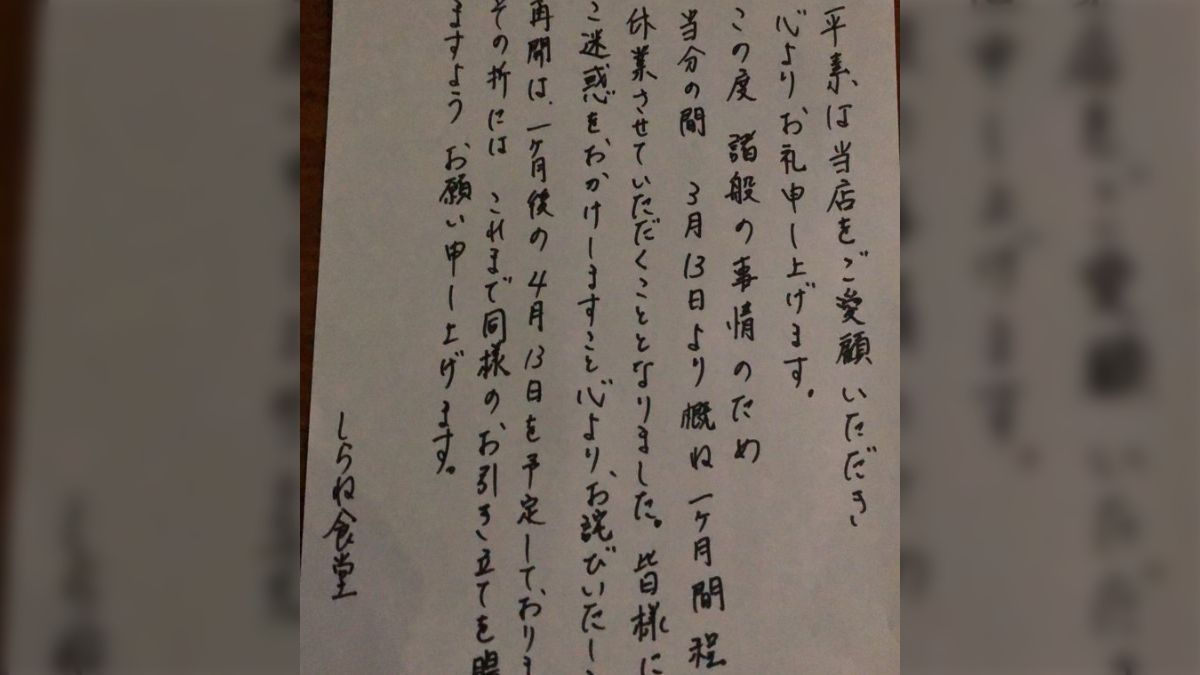 平素は当店をご愛顧いただき
心よりお礼申し上げます。
この度 諸般の事情のため
当分の間 3月13日より概ね一ヶ月間程
休業させていただくこととなりました。皆様に
ご迷惑をおかけしますこと心より、お詫びいたし
再開は、一ヶ月後の4月13日を予定しており
その折には これまで同様のお引き立てを賜
ますよう お願い申し上げます。
しらね食堂